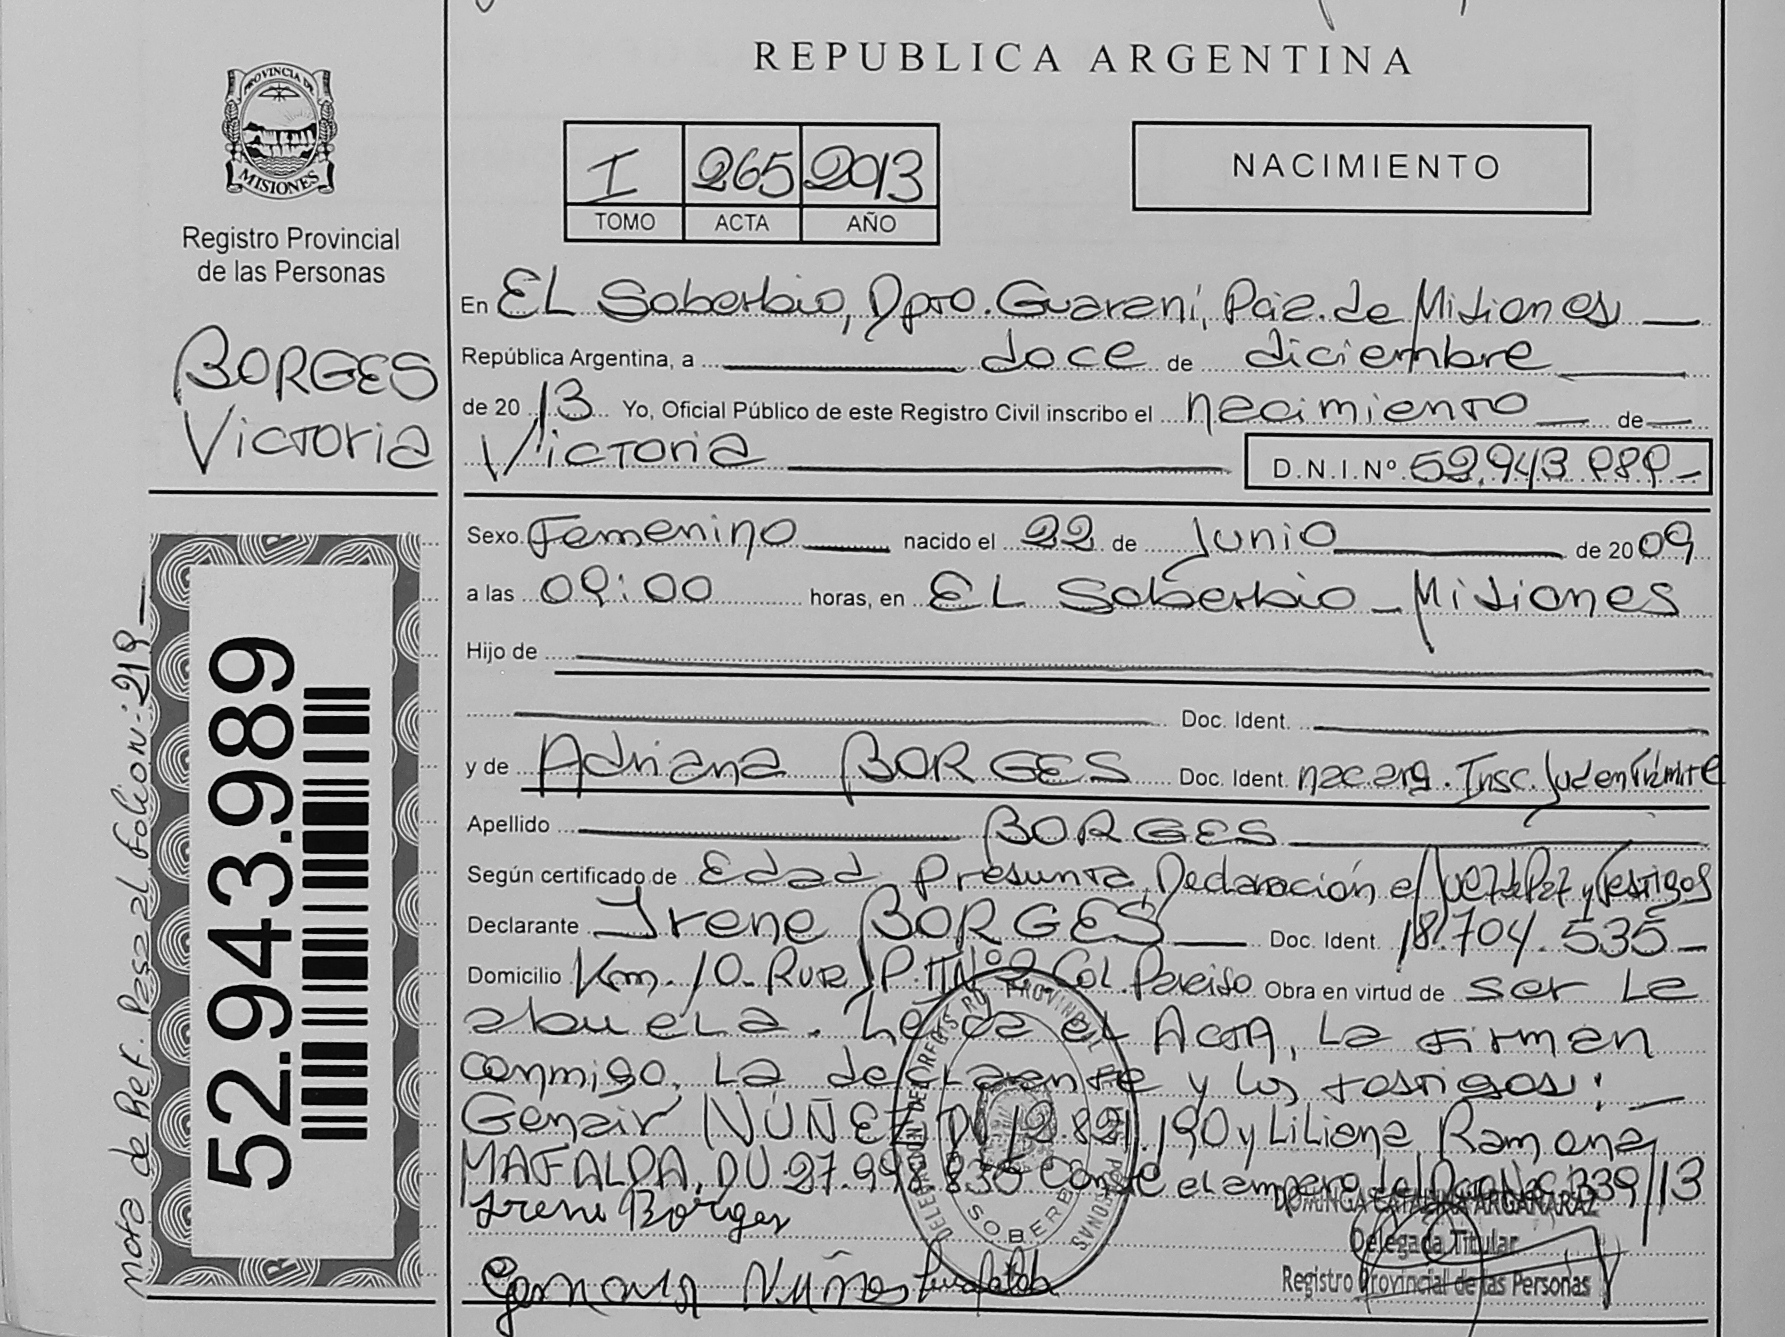 REPUBLICA ARGENTINA
PROVINCIA DE
MISIONES
Registro Provincial
de las Personas
I 265 2013
TOMO ACTA AÑO
NACIMIENTO
BORGES
Victoria
52.943.989
nota de Ref. Pasa al folio N: 219
En EL Soberbio, Dpto. Guaraní, Pcia. de Misiones
República Argentina, a doce de diciembre
de 2013 Yo, Oficial Público de este Registro Civil inscribo el nacimiento de
Victoria D.N.I. Nº 52.943.989
Sexo Femenino nacido el 22 de Junio de 2009
a las 09:00 horas, en EL Soberbio - Misiones
Hijo de
Doc. Ident.
y de Adriana BORGES Doc. Ident. nac. arg. Insc. Jud en Trámite
Apellido BORGES
Según certificado de Edad Presunta, Declaración e/ Juez de Paz y Testigos
Declarante Irene BORGES Doc. Ident. 18.704.535
Domicilio Km. 10. Ruta P. Nº 2 Col. Paraiso Obra en virtud de ser La
abuela. Leída el Acta, La firman
conmigo, La declarante y los testigos:
Genair NÚÑEZ DU 12.821.190 y Liliana Ramona
MAFALDA, DU 27.998.835 Conste el amparo del Dcto Nac 339/13
Irene Borges
DELEGACION DE
REGISTRO PROVINCIAL
DE LAS PERSONAS
DOMINGA CATALINA ARGAÑARAZ
Delegada Titular
Registro Provincial de las Personas